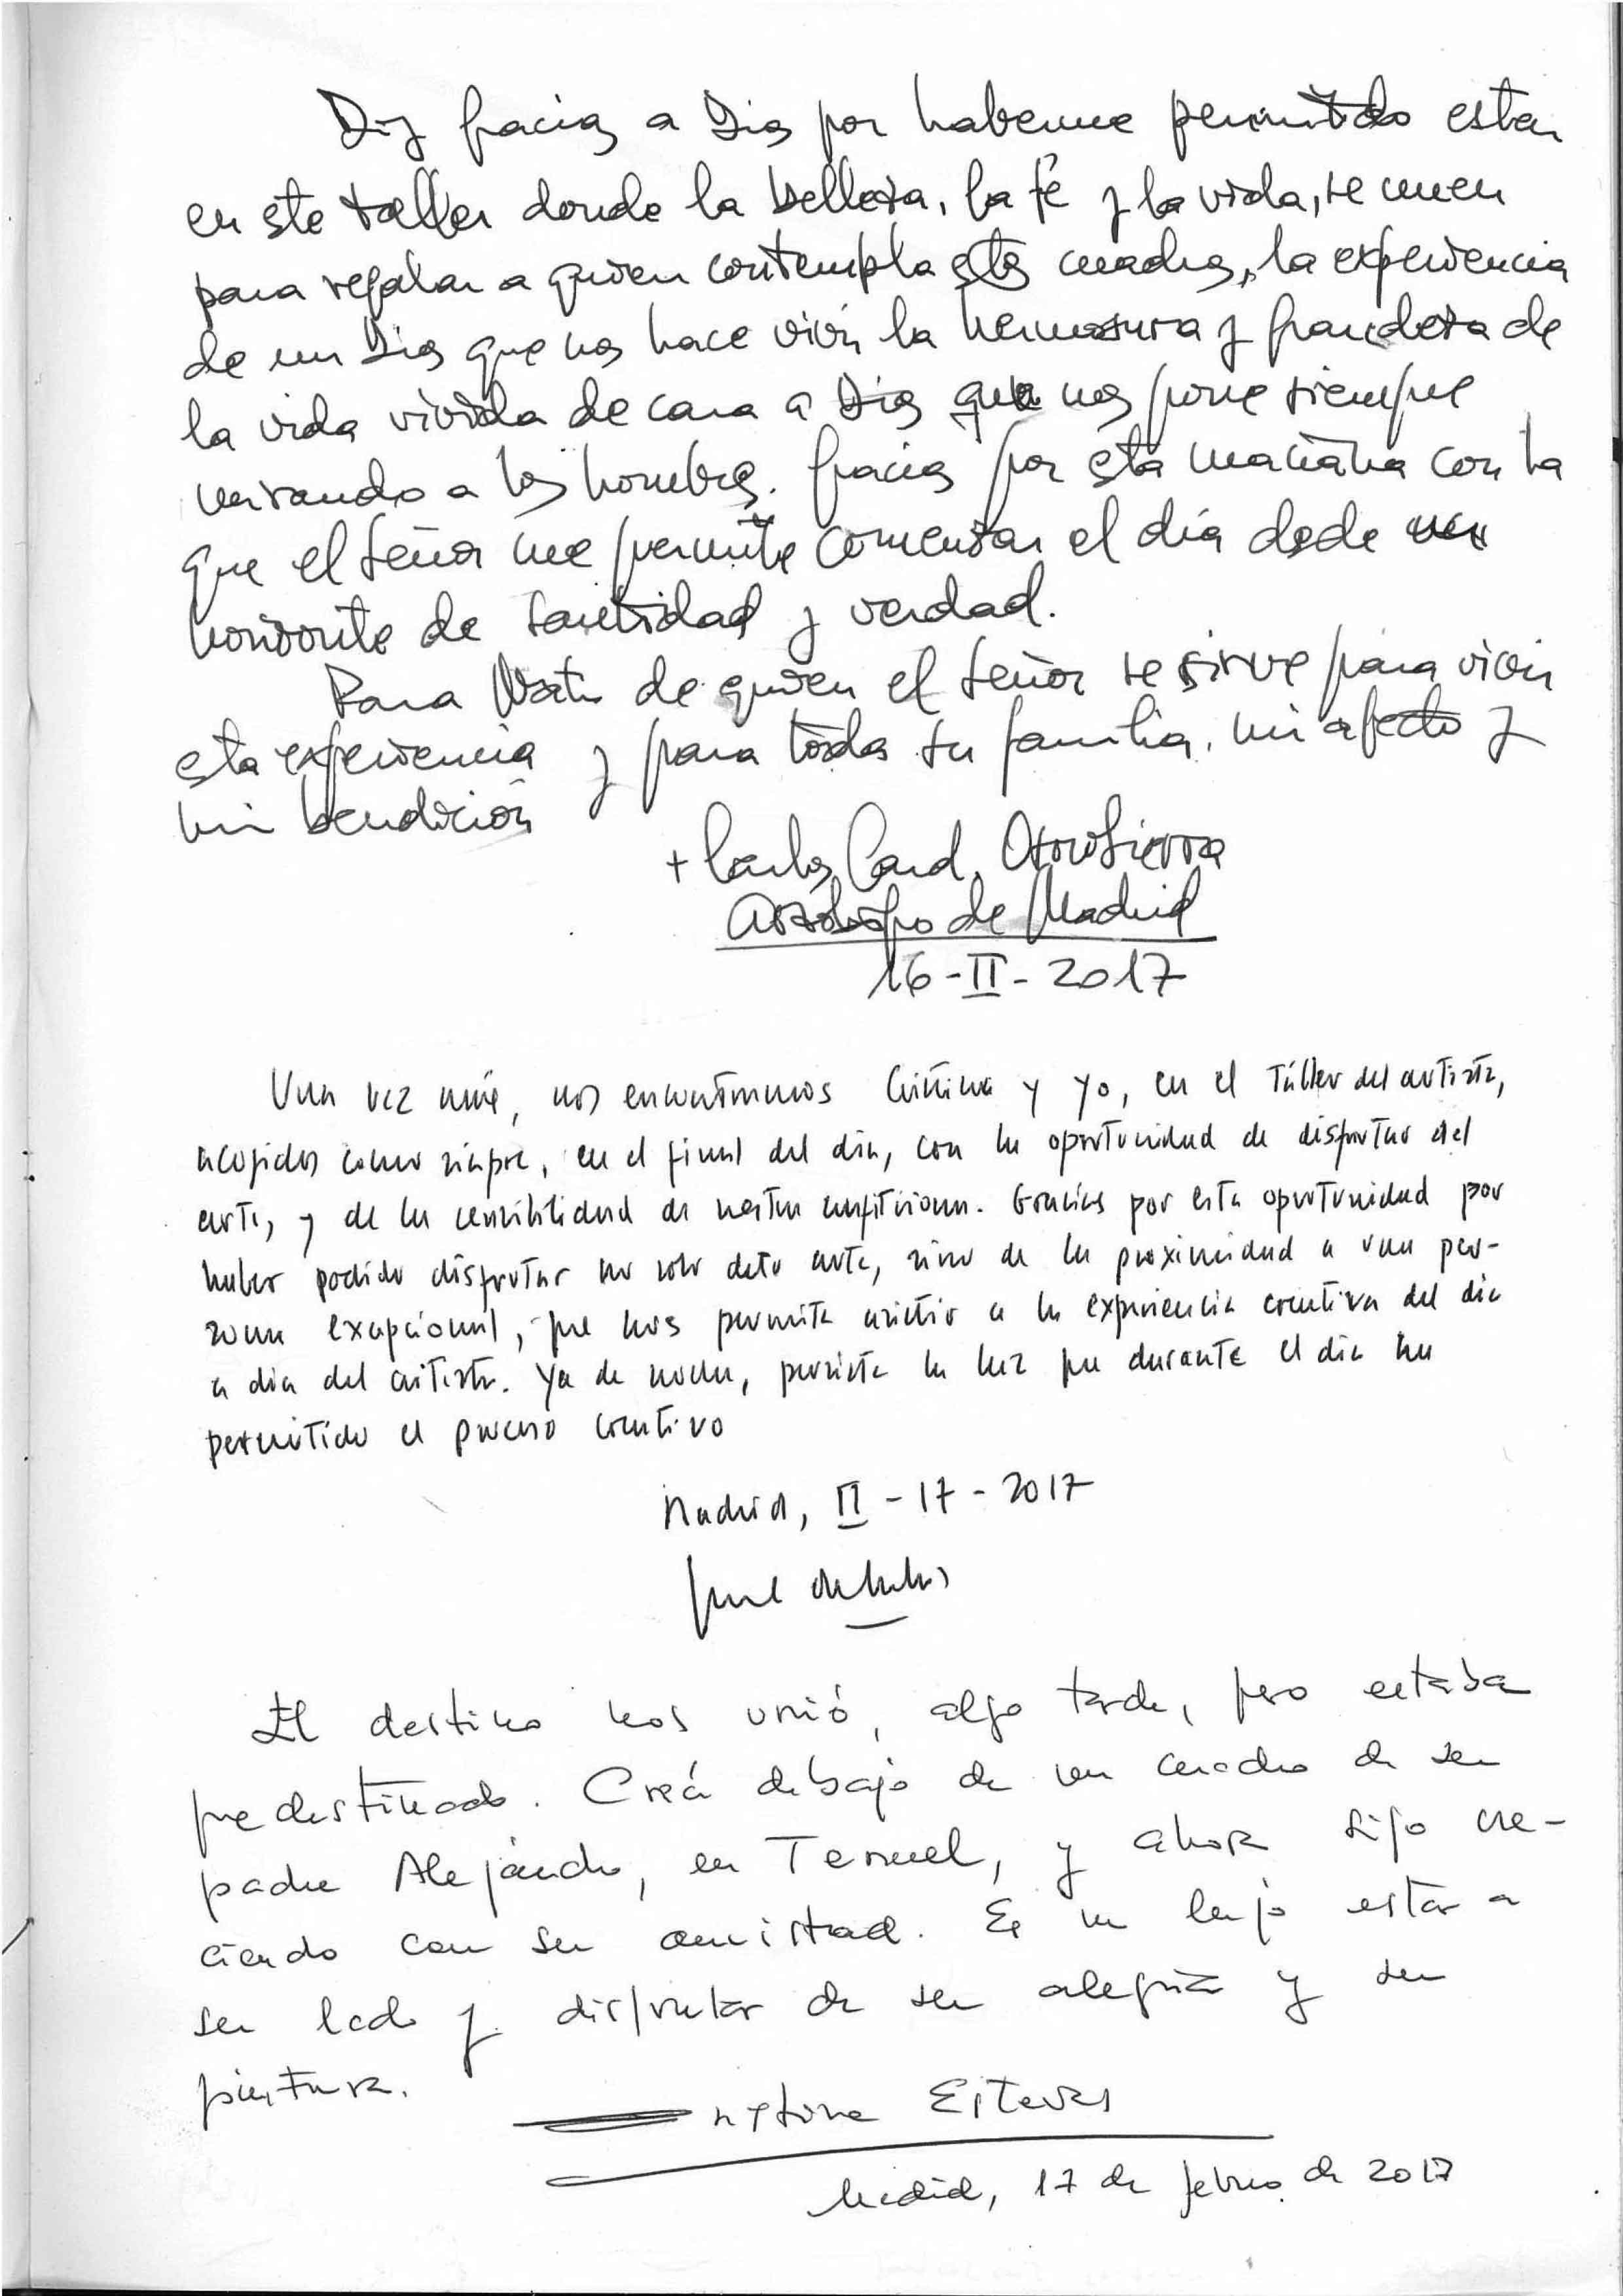 Doy gracias a Dios por haberme permitido estar
en este taller donde la belleza, la fe y la vida, se unen
para regalar a quien contempla estos cuadros, la experiencia
de un Dios que nos hace vivir la hermosura y grandeza de
la vida vivida de cara a Dios que nos pone siempre
mirando a los hombres. Gracias por esta mañana con la
que el Señor me permite comenzar el día desde un
horizonte de santidad y verdad.
Para de quien el Señor se sirve para vivir
esta experiencia y para toda su familia, mi afecto y
mi bendición
+ Carlos Card. Osoro Sierra
Arzobispo de Madrid
16-II-2017
Una vez más, nos encontramos Cristina y yo, en el Taller del artista,
acogidos como siempre, en el final del día, con la oportunidad de disfrutar del
arte, y de la sensibilidad de nuestra anfitriona. Gracias por esta oportunidad por
haber podido disfrutar no solo de tu arte, sino de la proximidad a una per-
sona excepcional, que nos permite asistir a la experiencia creativa del dia
a dia del artista. Ya de noche, persiste la luz que durante el dia ha
permitido el proceso creativo
Madrid, II-17-2017
El destino nos unió, algo tarde, pero estaba
predestinado. Crecí debajo de un cuadro de su
padre Alejandro, en Teruel, y ahora sigo cre-
ciendo con su amistad. Es un lujo estar a
su lado y disfrutar de su alegría y su
pintura.
Esteves
Madrid, 17 de febrero de 2017